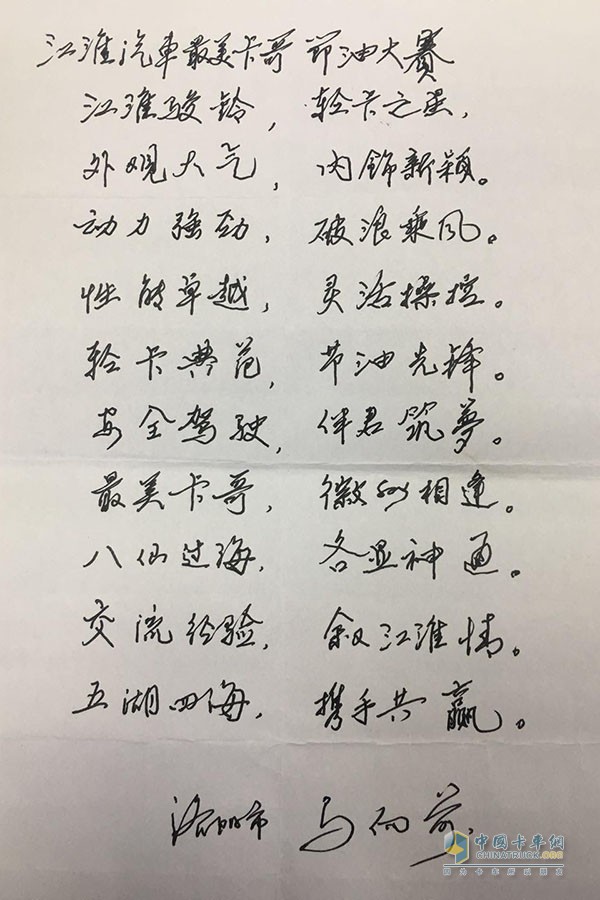 江淮汽車最美卡哥 节油大賽
江淮骏铃，轻卡之星，
外观大气，内飾新颖。
动力强劲，破浪乘风。
性能卓越，灵活操控。
轻卡典范，节油先锋。
安全驾驶，伴君筑夢。
最美卡哥，徽州相逢。
八仙过海，各显神通。
交流经验，叙江淮情。
五湖四海，携手共赢。
洛阳市 马向前
中国卡车网
CHINATRUCK.ORG
因为卡车所以朋友